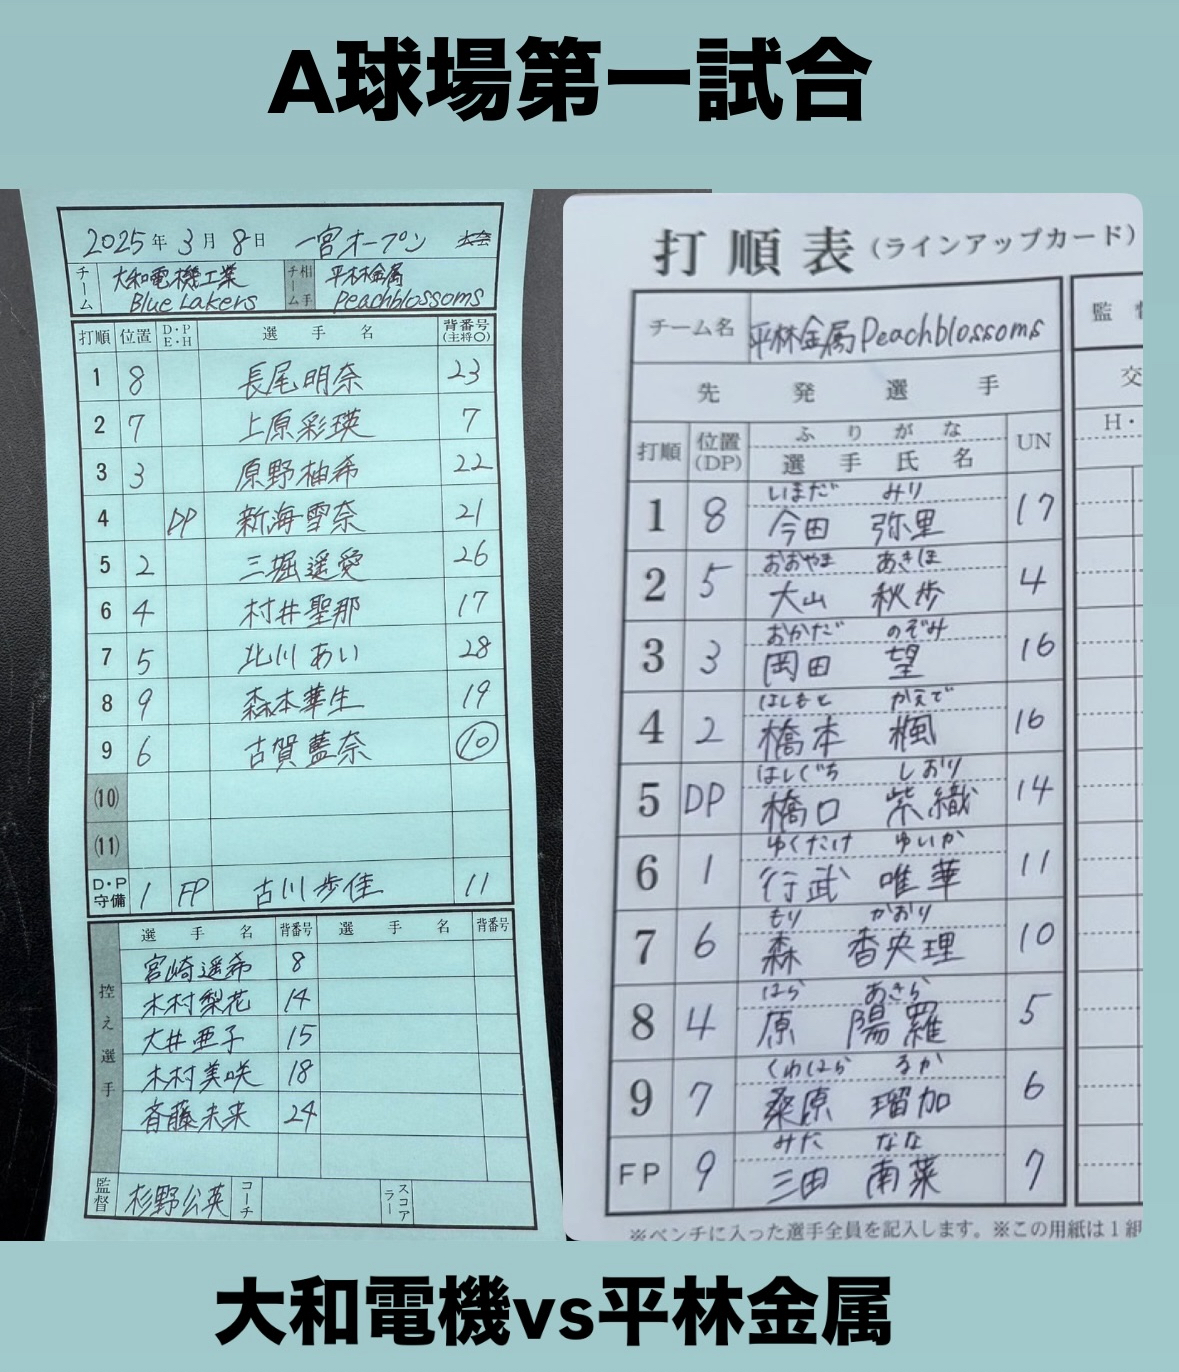 A球場第一試合
2025年 3月 8日 一宮オープン 大会
チーム 大和電機工業 Blue Lakers 相手チーム 平林金属 Peachblossoms
打順 位置 D・P E・H 選手名 背番号 (主将○)
1 8 長尾明奈 23
2 7 上原彩瑛 7
3 3 原野柚希 22
4 DP 新海雪奈 21
5 2 三堀遥愛 26
6 4 村井聖那 17
7 5 北川あい 28
8 9 森本華生 19
9 6 古賀藍奈 10
(10)
(11)
D・P 守備 1 FP 古川歩佳 11
控え選手
選手名 背番号 選手名 背番号
宮崎遥希 8
木村梨花 14
大井亜子 15
木村美咲 18
斉藤未来 24
監督 杉野公英 コーチ スコアラー
打順表 (ラインアップカード)
チーム名 平林金属Peachblossoms 監
先発選手 交
打順 位置(DP) ふりがな 選手氏名 UN H・
いまだ みり
1 8 今田 弥里 17
おおやま あきほ
2 5 大山 秋歩 4
おかだ のぞみ
3 3 岡田 望 16
はしもと かえで
4 2 橋本 楓 16
はしぐち しおり
5 DP 橋口 紫織 14
ゆくたけ ゆいか
6 1 行武 唯華 11
もり かおり
7 6 森 香央理 10
はら あきら
8 4 原 陽羅 5
くわはら るか
9 7 桑原 瑠加 6
みた なな
FP 9 三田 南菜 7
※ベンチに入った選手全員を記入します。※この用紙は1組
大和電機vs平林金属